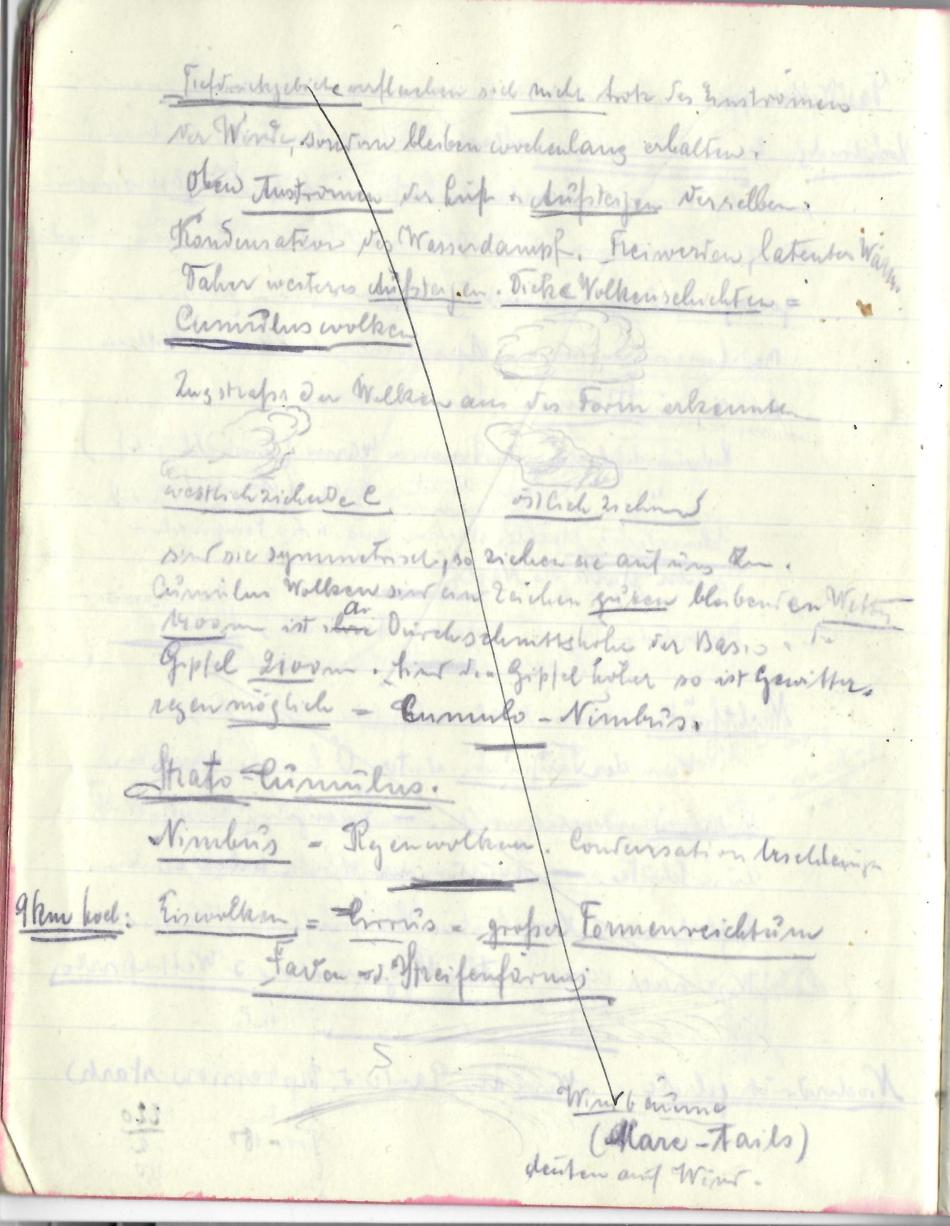 Tiefdruckgebiete verflachen sich nicht trotz des Einströmens
der Winde, sondern bleiben wochenlang erhalten.
Oben Ausströmen der Luft u. Aufsteigen derselben.
Kondensation des Wasserdampf. Freiwerden latenter Wärme.
Daher weiteres Aufsteigen. Dicke Wolkenschichten =
Cumuluswolken
Zugstraße der Wolken aus der Form erkennen
westlich ziehende östlich ziehend
sind sie symmetrisch, so ziehen sie auf uns zu.
Cumulus Wolken sind ein Zeichen guten bleibenden Wetter
1400m ist die Durchschnittshöhe der Basis.
Gipfel 2100m. Sind die Gipfel höher so ist Gewitter-
regen möglich = Cumulo-Nimbus.
Strato-Cumulus.
Nimbus = Regenwolken. Condensation
9km hoch: Eiswolken = Cirrus = großer Formenreichtum
Faden od. Streifenförmig
Windbäume
(Mare-Tails)
deuten auf Wind.